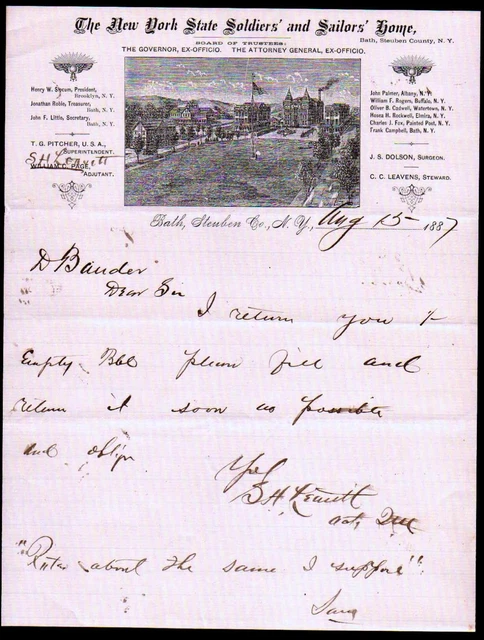 The New York State Soldiers' and Sailors' Home,
Bath, Steuben County, N. Y.
BOARD OF TRUSTEES:
THE GOVERNOR, EX-OFFICIO. THE ATTORNEY GENERAL, EX-OFFICIO.
Henry W. Slocum, President,
Brooklyn, N. Y.
Jonathan Robie, Treasurer,
Bath, N. Y.
John F. Little, Secretary,
Bath, N. Y.
T. G. PITCHER, U. S. A.,
SUPERINTENDENT.
S H Leavitt
WILLIAM C. PAGE,
ADJUTANT.
John Palmer, Albany, N. Y.
William F. Rogers, Buffalo, N. Y.
Oliver B. Cadwell, Watertown, N. Y.
Hosea H. Rockwell, Elmira, N. Y.
Charles J. Fox, Painted Post, N. Y.
Frank Campbell, Bath, N. Y.
J. S. DOLSON, SURGEON.
C. C. LEAVENS, STEWARD.
Bath, Steuben Co., N. Y., Aug 15 1887
D Bauder
Dear Sir
I return you
Empty Bbl please fill and
return it soon as possible
and oblige
S H Leavitt
"Rates about the same I suppose"